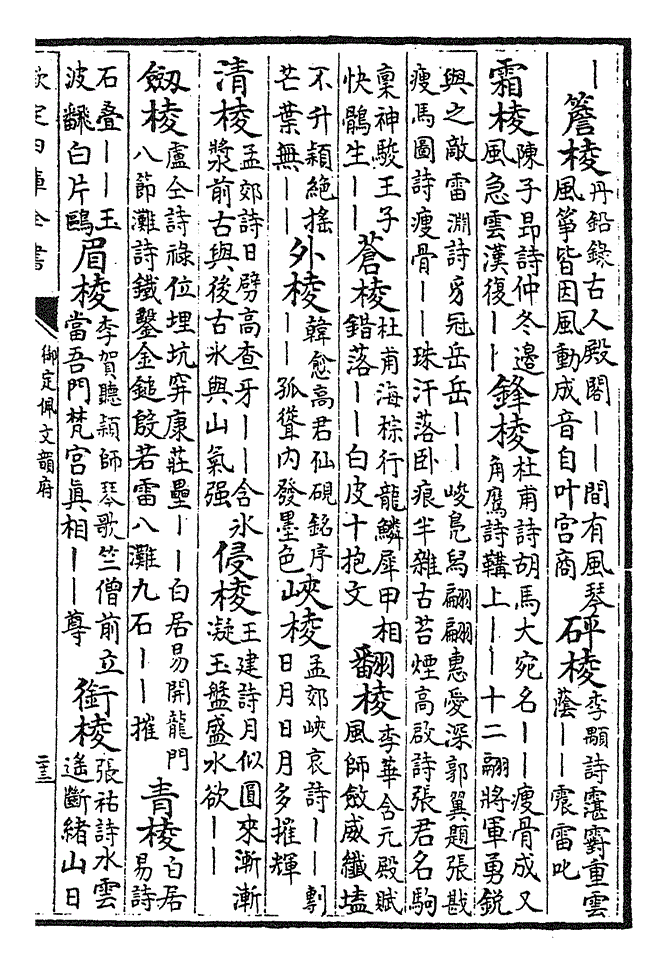 丨簷棱丹鉛錄古人殿閣丨丨間有風琴風箏皆因風動成音自叶宫商砰棱李顒詩靉霴重雲蔭丨丨震雷叱
霜棱陳子昂詩仲冬邊風急雲漢復丨丨鋒棱杜甫詩胡馬大宛名丨丨瘦骨成又角鷹詩鞲上丨丨十二翮將軍勇銳
與之敵雷淵詩豸冠岳岳丨丨峻鳧舄翩翩惠愛深郭翼題張戡瘦馬圖詩瘦骨丨丨珠汗落卧痕半雜古苔煙高啟詩張君名駒
稟神駿王子快鶻生丨丨蒼棱杜甫海棕行龍鱗犀甲相錯落丨丨白皮十抱文翻棱李華含元殿賦風師斂威纖壒
不升穎絶搖芒葉無丨丨外棱韓愈高君仙硯銘序丨丨孤聳内發墨色峽棱孟郊峽哀詩丨丨剸日月日月多摧輝
清棱孟郊詩日劈高查牙丨丨含氷漿前古與後古氷與山氣强侵棱王建詩月似圓來漸漸凝玉盤盛水欲丨丨
劒棱盧仝詩祿位埋坑穽康莊壘丨丨白居易開龍門八節灘詩鐵鑿金鎚殷若雷八灘九石丨丨摧青棱白居易詩
石疊丨丨玉波飜白片鷗眉棱李賀聽穎師琴歌竺僧前立當吾門梵宫眞相丨丨尊銜棱張祜詩水雲遥斷緒山日
欽定四庫全書
御定佩文韻府
二十三